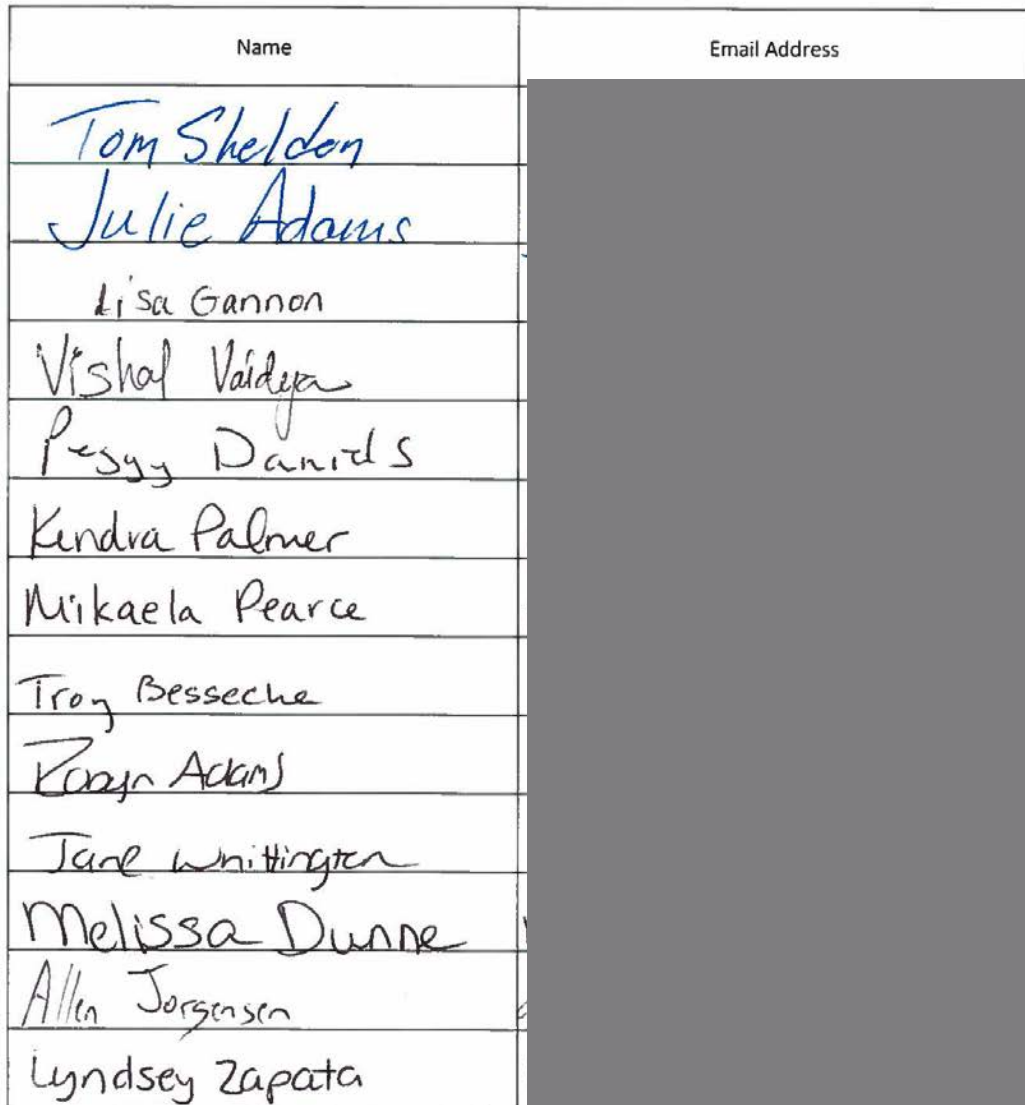 Name Email Address
Tom Sheldon
Julie Adams
Lisa Gannon
Vishal Vaidya
Peggy Daniels
Kendra Palmer
Mikaela Pearce
Troy Besseche
Robyn Adams
Jane Whittington
Melissa Dunne
Allen Jorgensen
Lyndsey Zapata